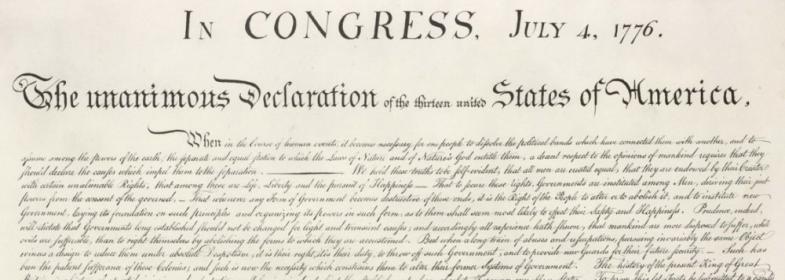 IN CONGRESS, JULY 4, 1776.
The unanimous Declaration of the thirteen united States of America,
When in the Course of human events, it becomes necessary for one people to dissolve the political bands which have connected them with another, and to
assume among the powers of the earth, the separate and equal station to which the Laws of Nature and of Nature's God entitle them, a decent respect to the opinions of mankind requires that they
should declare the causes which impel them to the separation. We hold these truths to be self-evident, that all men are created equal, that they are endowed by their Creator
with certain unalienable Rights, that among these are Life, Liberty and the pursuit of Happiness — That to secure these rights, Governments are instituted among Men, deriving their just
powers from the consent of the governed, — That whenever any Form of Government becomes destructive of these ends, it is the Right of the People to alter or to abolish it, and to institute new
Government, laying its foundation on such principles and organizing its powers in such form, as to them shall seem most likely to effect their Safety and Happiness. Prudence, indeed,
will dictate that Governments long established should not be changed for light and transient causes; and accordingly all experience hath shewn, that mankind are more disposed to suffer, while
evils are sufferable, than to right themselves by abolishing the forms to which they are accustomed. But when a long train of abuses and usurpations, pursuing invariably the same Object
evinces a design to reduce them under absolute Despotism, it is their right, it is their duty, to throw off such Government, and to provide new Guards for their future security. — Such has
been the patient sufferance of these Colonies; and such is now the necessity which constrains them to alter their former Systems of Government. The history of the present King of Great